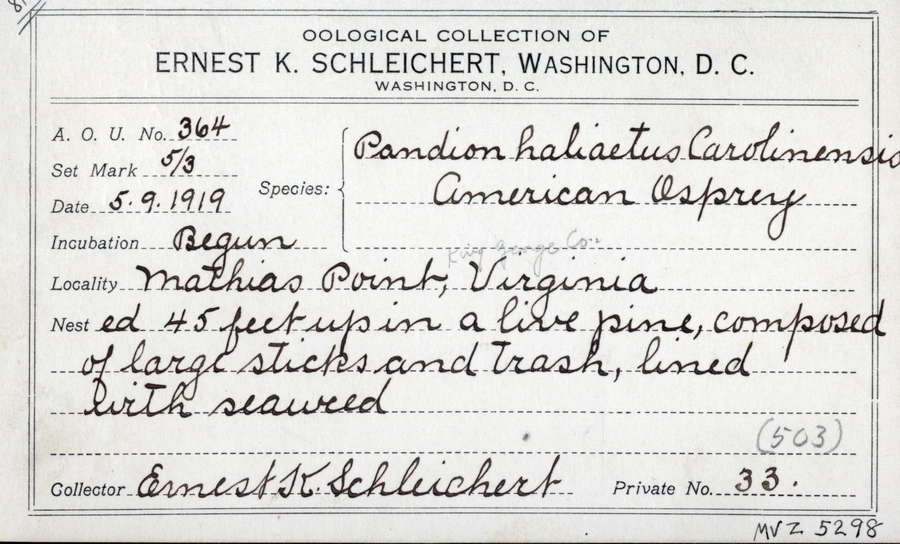 OOLOGICAL COLLECTION OF
ERNEST K. SCHLEICHERT, WASHINGTON, D. C.
WASHINGTON, D. C.
A. O. U. No. 364
Set Mark 5/3
Date 5.9.1919
Species: Pandion haliaetus Carolinensis
American Osprey
Incubation Begun
King George Co.
Locality Mathias Point, Virginia
Nest ed 45 feet up in a live pine, composed
of large sticks and trash, lined
with seaweed
(503)
Collector Ernest K. Schleichert Private No. 33.
MVZ 5298